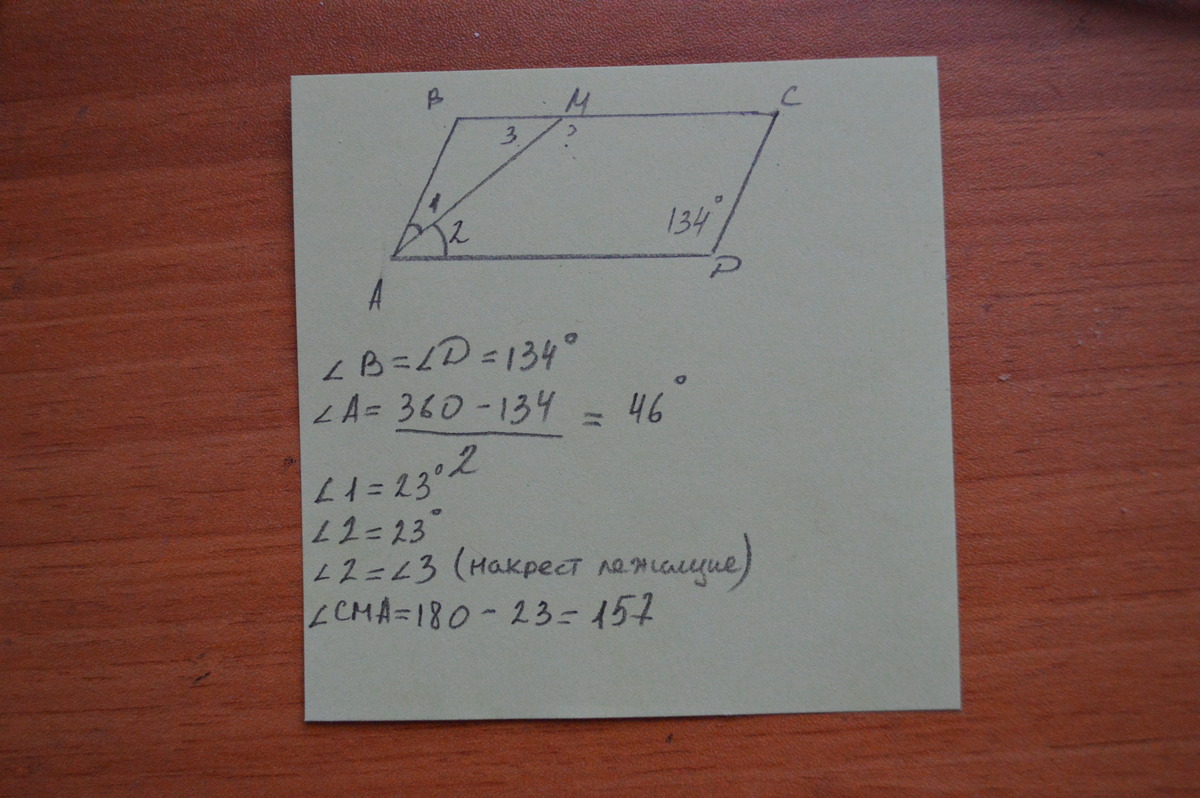 B M C
3 ?
1
2
134°
A D
∠B=∠D=134°
∠A= 360-134 / 2 = 46°
∠1=23°
∠2=23°
∠2=∠3 (накрест лежащие)
∠CMA=180-23=157